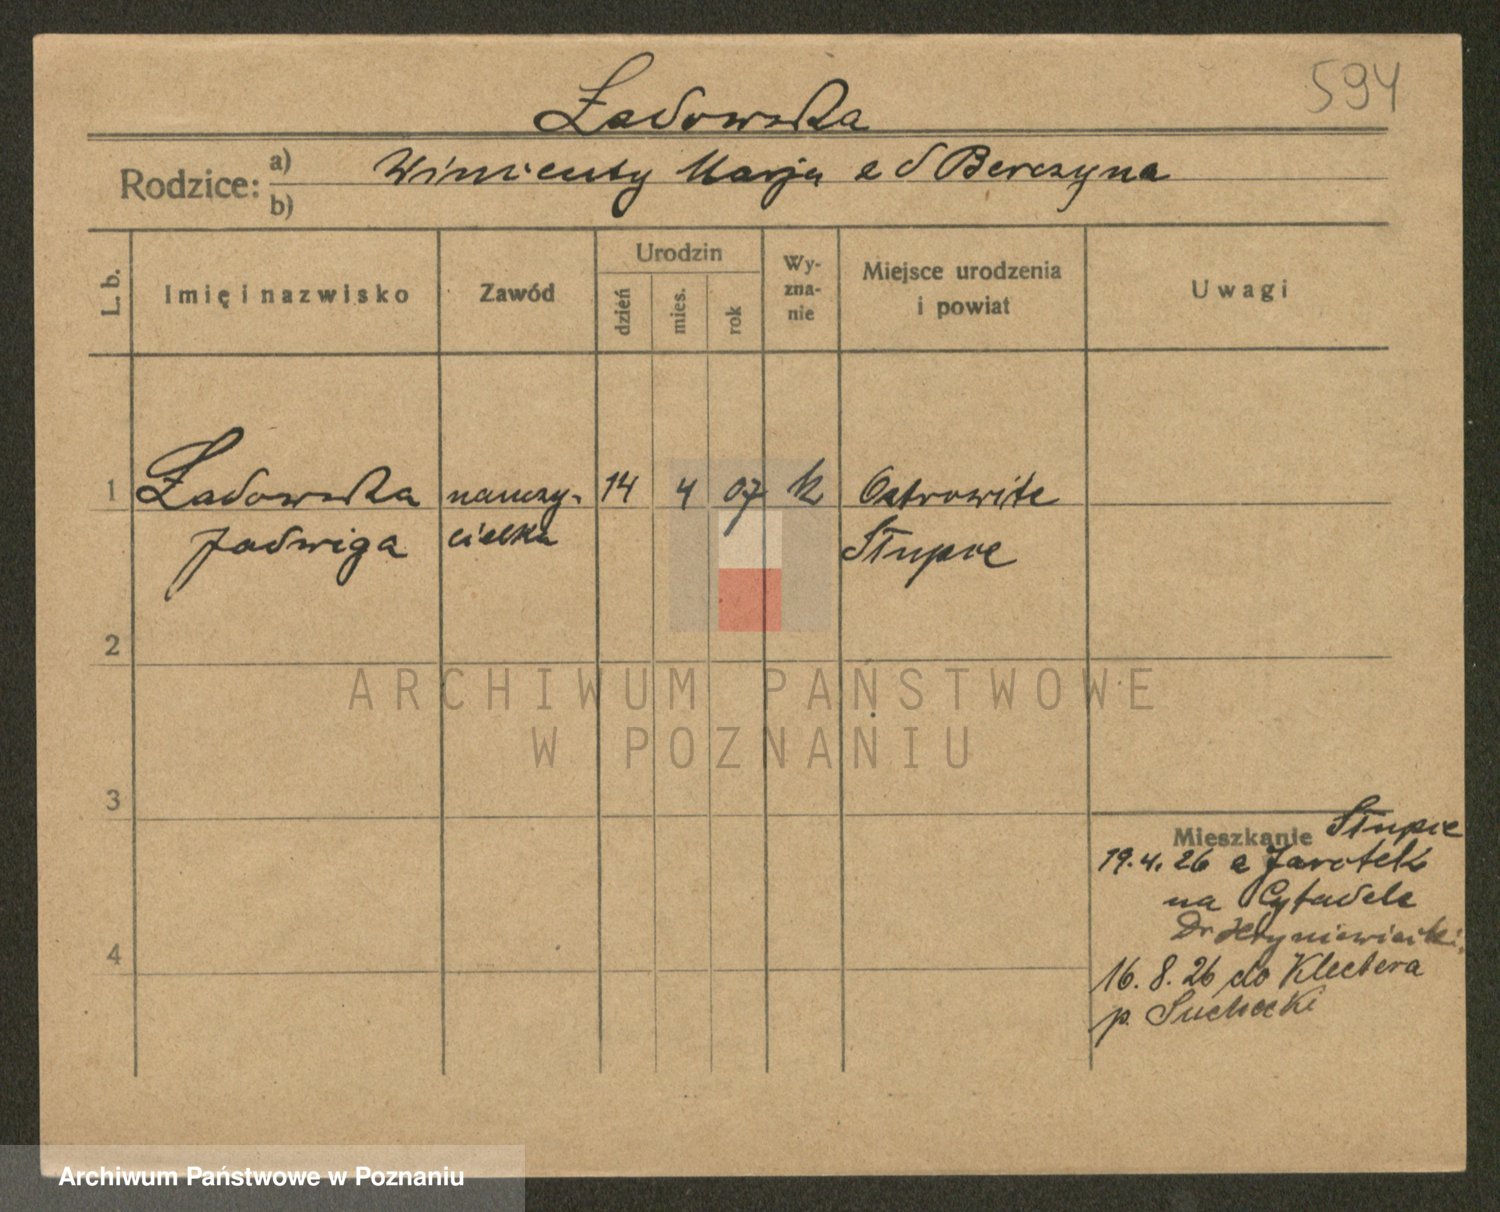 594
Ładowska
Rodzice: a) Wincenty Marja z d Berczyna
b)
L. b. Imię i nazwisko Zawód Urodzin dzień mies. rok Wyznanie Miejsce urodzenia i powiat Uwagi
1 Ładowska nauczy- 14 4 07 k Ostrowite
Jadwiga cielka Słupce
2
ARCHIWUM PAŃSTWOWE
W POZNANIU
3
Mieszkanie Słupce
19.4.26 z
na Cytadele
Dr
4
16.8.26 do Kleckera
p. Suchocki
Archiwum Państwowe w Poznaniu